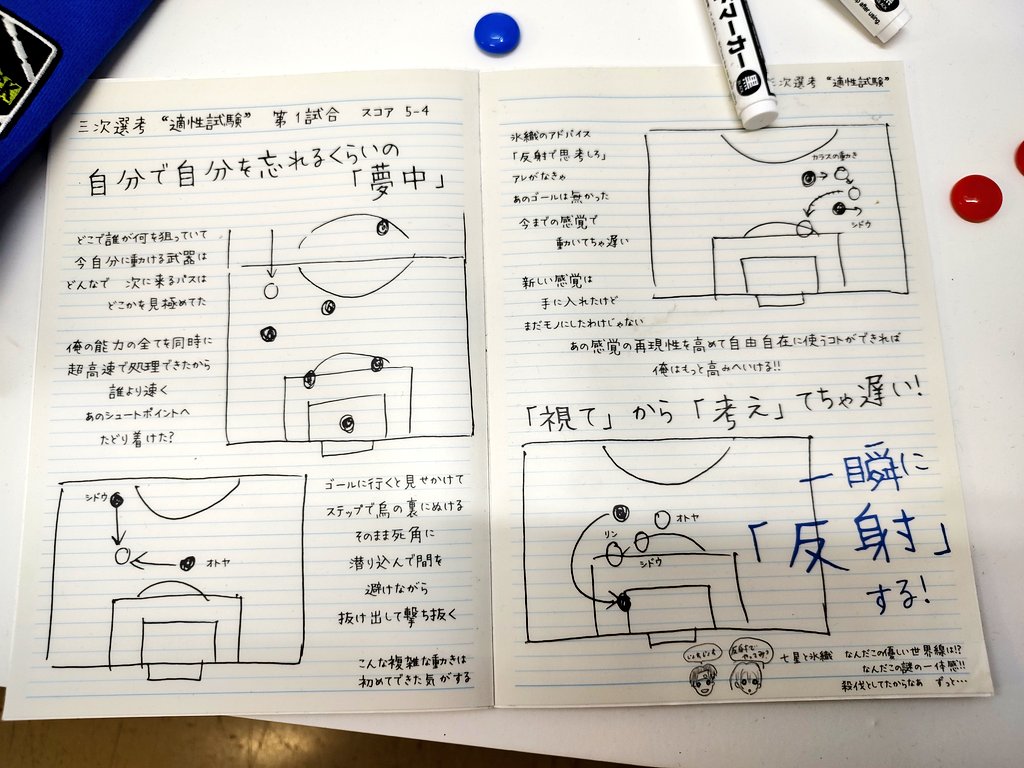 三次選考 “適性試験” 第1試合 スコア 5-4
自分で自分を忘れるくらいの
「夢中」
どこで誰が何を狙っていて
今自分に動ける武器は
どんなで 次に来るパスは
どこかを見極めてた
俺の能力の全てを同時に
超高速で処理できたから
誰より速く
あのシュートポイントへ
たどり着けた?
シドウ
オトヤ
ゴールに行くと見せかけて
ステップで烏の裏にぬける
そのまま死角に
潜り込んで間を
避けながら
抜け出して撃ち抜く
こんな複雑な動きは
初めてできた気がする
三次選考 “適性試験”
氷織のアドバイス
「反射で思考しろ」
アレがなきゃ
あのゴールは無かった
今までの感覚で
動いてちゃ遅い
カラスの動き
シドウ
新しい感覚は
手に入れたけど
まだモノにしたわけじゃない
あの感覚の再現性を高めて自由自在に使うコトができれば
俺はもっと高みへいける!!
「視て」から「考え」てちゃ遅い!
一瞬に
「反射」
する!
オトヤ
リン
シドウ
七星と氷織
なんだこの優しい世界線は!?
なんだこの謎の一体感!!
殺伐としてたからなあ ずっと…
イレーサー
黒
after using.